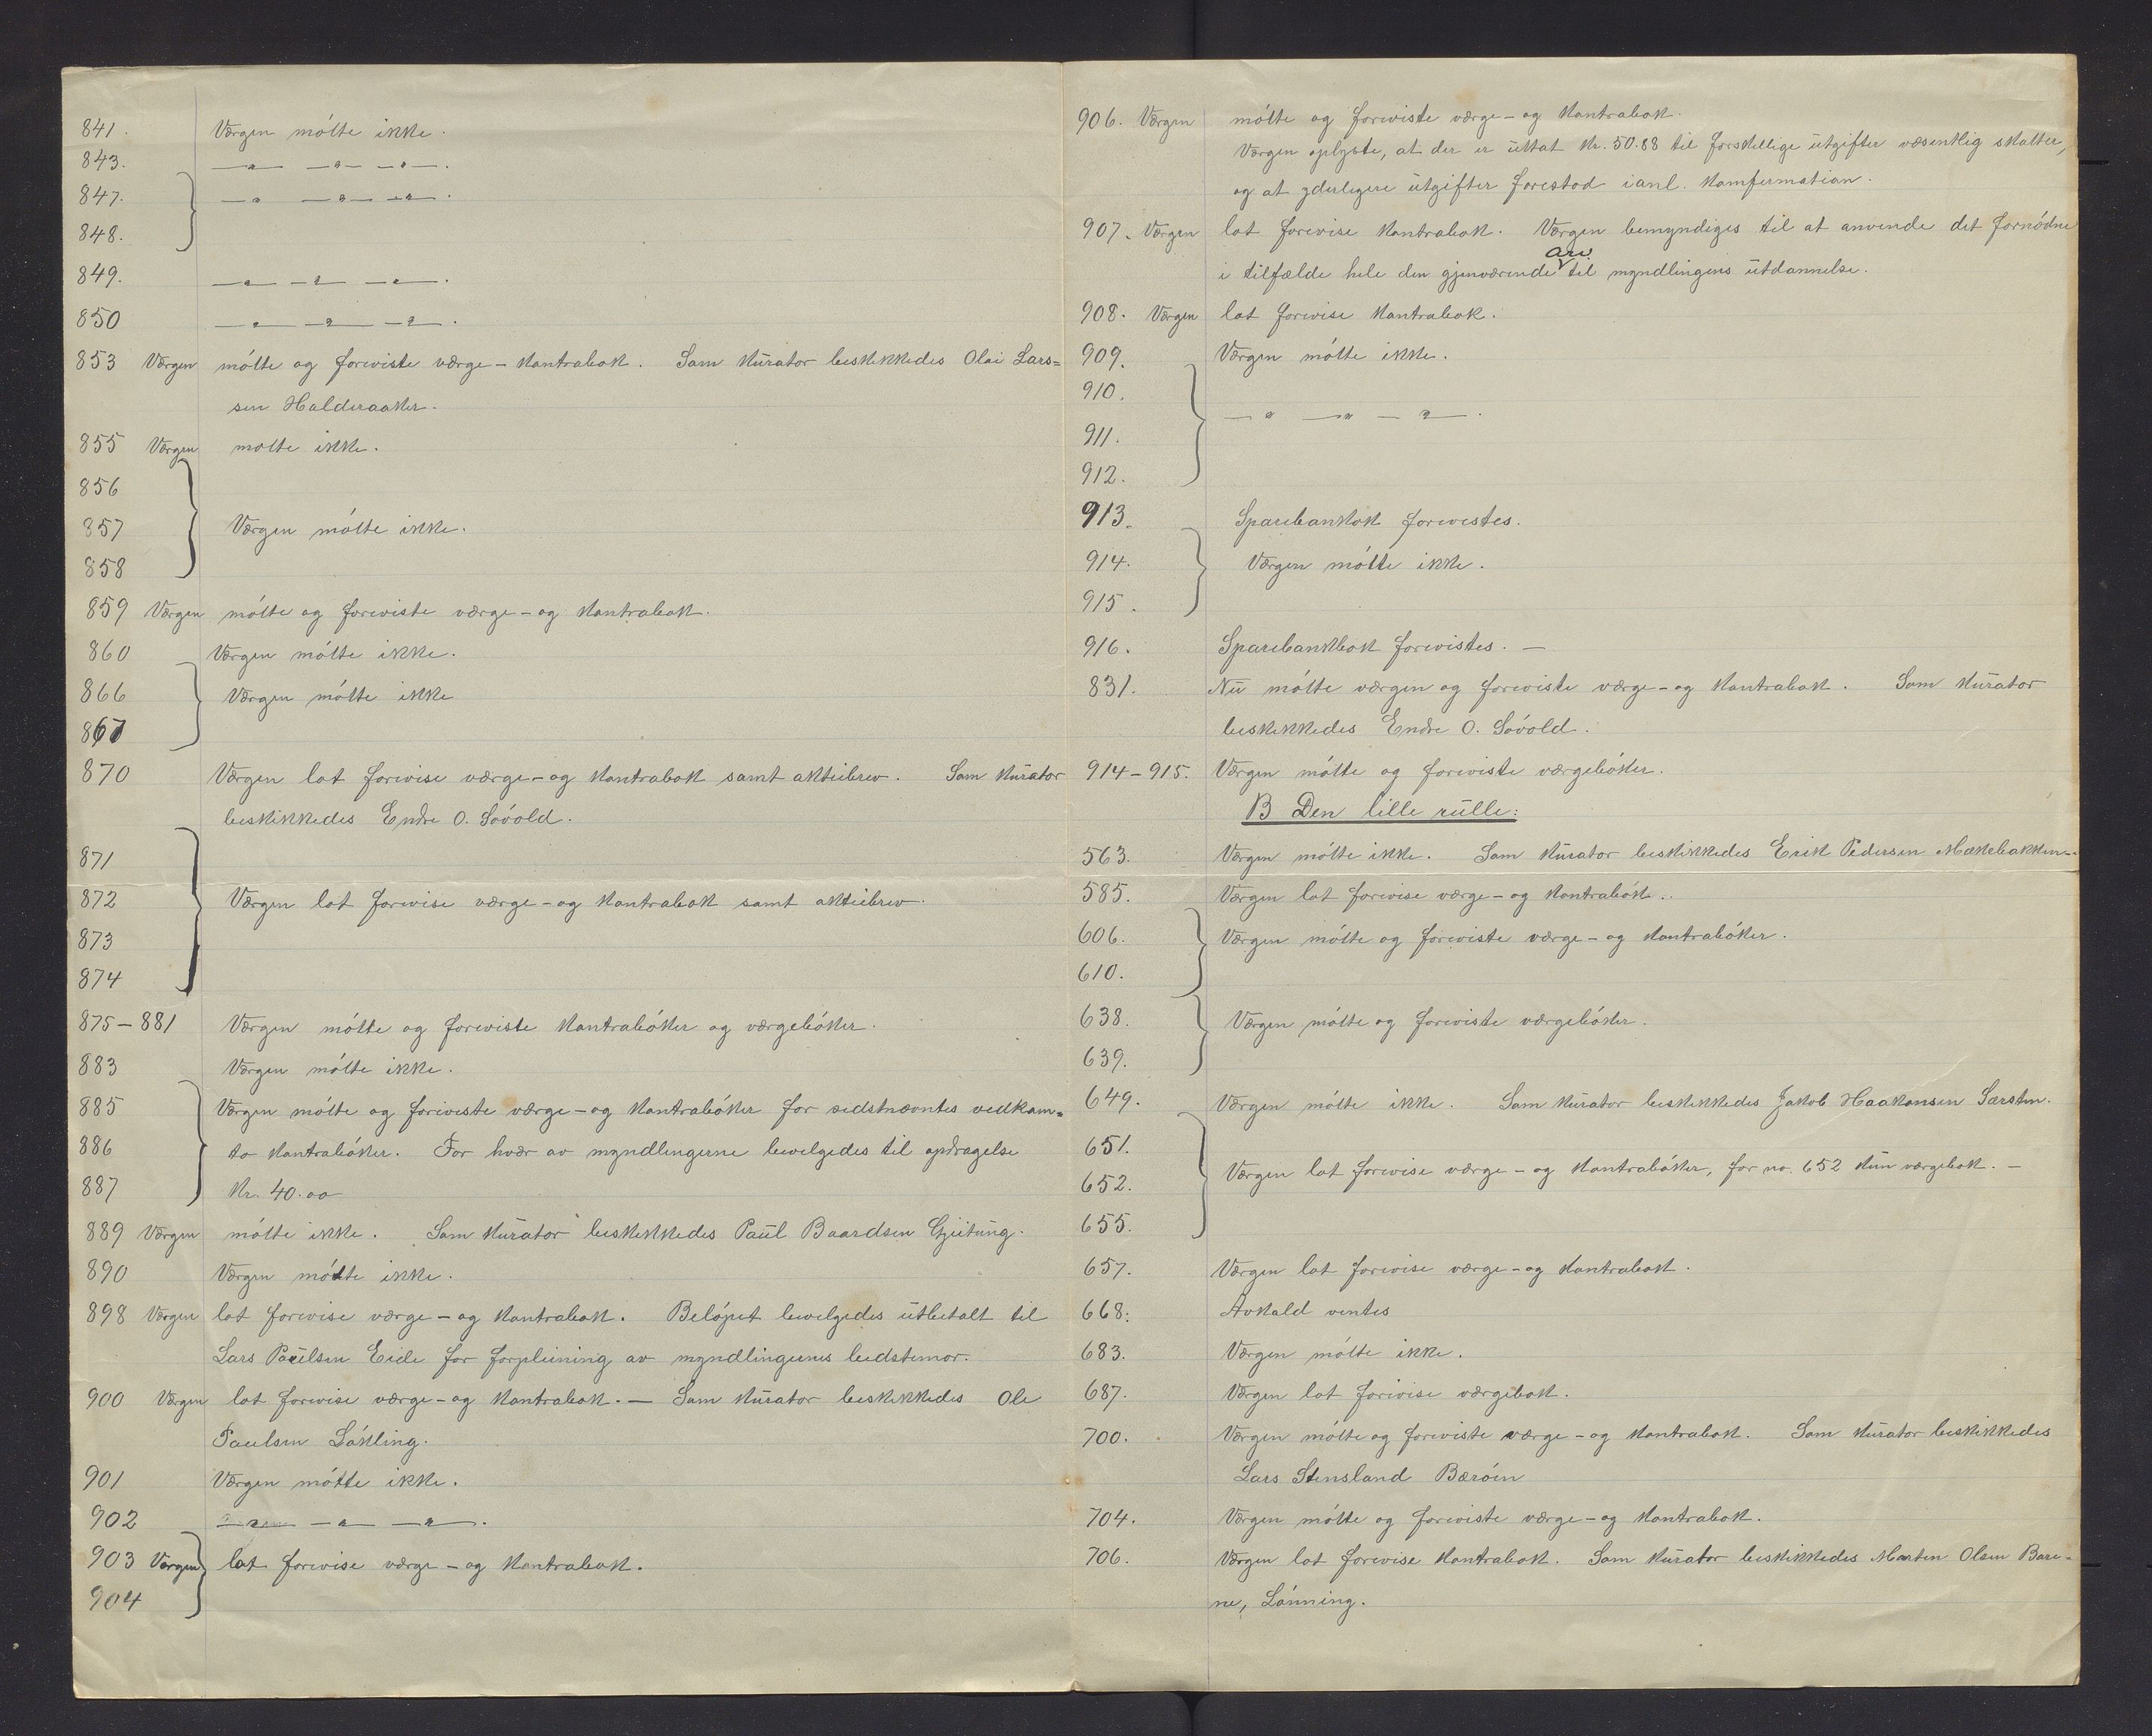 841. Værgen mötte ikke.
843. —"— —"— —"—.
847. —"— —"— —"—.
848.
849. —"— —"— —"—.
850 —"— —"— —"—.
853 Værgen mötte og foreviste værge- kontrabok. Som kurator beskikkedes Olai Lars=
sen Halderaaker.
855 Værgen motte ikke.
856
857 Værgen mötte ikke.
858
859 Værgen mötte og foreviste værge- og kontrabok.
860 Værgen mötte ikke.
866 Værgen mötte ikke
867
870 Værgen lot forevise værge- og kontrabok samt aktiebrev. Som kurator
beskikkedes Endre O. Sövold.
871
872 Værgen lot forevise værge- og kontrabok samt aktiebrev.
873
874
875-881 Værgen mötte og foreviste kontraböker og værgeböker.
883 Værgen mötte ikke.
885 Værgen mötte og foreviste værge- og kontraböker for sidstnævntes vedkom=
886 to kontraböker. For hvær av myndlingerne bevilgedes til opdragelse
887 Kr. 40.oo
889 Værgen mötte ikke. Som kurator beskikkedes Paul Baardsen Gjetung.
890 Værgen mötte ikke.
898 Værgen lot forevise værge- og kontrabok. Belöpet bevilgedes utbetalt til
Lars Paulsen Eide for forpleining av myndlingernes bedstemor.
900 Værgen lot forevise værge- og kontrabok. — Som kurator beskikkedes Ole
Paulsen Lökling.
901 Værgen mötte ikke.
902 —"— —"— —"—.
903 Værgen lot forevise værge- og kontrabok.
904
906. Værgen mötte og foreviste værge- og kontrabok.
Værgen oplyste, at der er uttat kr. 50.88 til forskellige utgifter væsentlig skatter,
og at yderligere utgifter forestod i anl. konfermation.
907. Værgen lot forevise kontrabok. Værgen bemyndiges til at anvende det fornödne
arv
i tilfælde hele den gjenværende til myndlingens utdannelse.
908. Værgen lot forevise kontrabok.
909. Værgen mötte ikke.
910.
—"— —"— —"—.
911.
912.
913. Sparebankok forevistes.
914. Værgen mötte ikke.
915.
916. Sparebankbok forevistes. —
831. Nu mötte værgen og foreviste værge- og kontrabok. Som kurator
beskikkedes Endre O. Sövold.
914-915. Værgen mötte og foreviste værgeböker.
B Den lille rulle:
563. Værgen mötte ikke. Som kurator beskikkedes Erik Pedersen Mækebakken.
585. Værgen lot forevise værge- og kontrabok.
606. Værgen mötte og foreviste værge- og kontraböker.
610.
638. Værgen mötte og foreviste værgeböker.
639.
649. Værgen mötte ikke. Som kurator beskikkedes Jakob Haakonsen Sørsten.
651.
Værgen lot forevise værge- og kontraböker, for no. 652 kun værgebok. —
652.
655.
657. Værgen lot forevise værge- og kontrabok.
668. Avkald ventes
683. Værgen mötte ikke.
687. Værgen lot forevise værgebok.
700. Værgen mötte og foreviste værge- og kontrabok. Som kurator beskikkedes
Lars Stensland Beröen
704. Værgen mötte og foreviste værge- og kontrabok.
706. Værgen lot forevise kontrabok. Som kurator beskikkedes Morten Olsen Bare-
ne, Lönning.